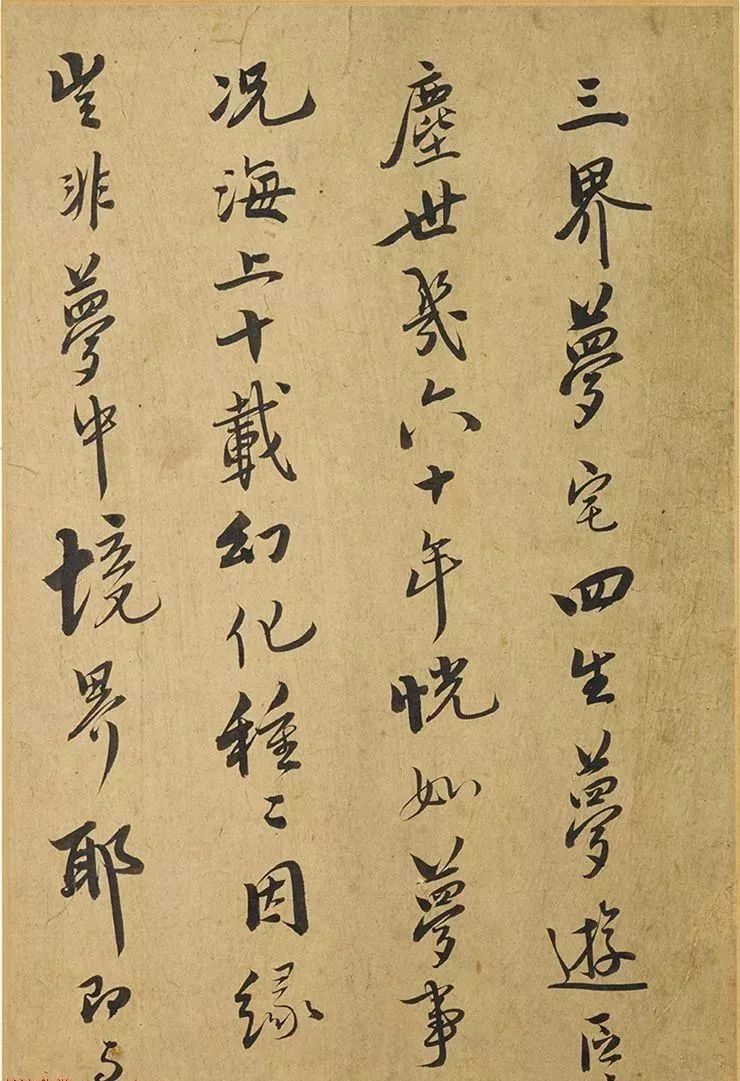 三界夢宅四生夢遊区
塵世幾六十年恍如夢事
况海上十載幻化種〻因緣
豈非夢中境界耶即与